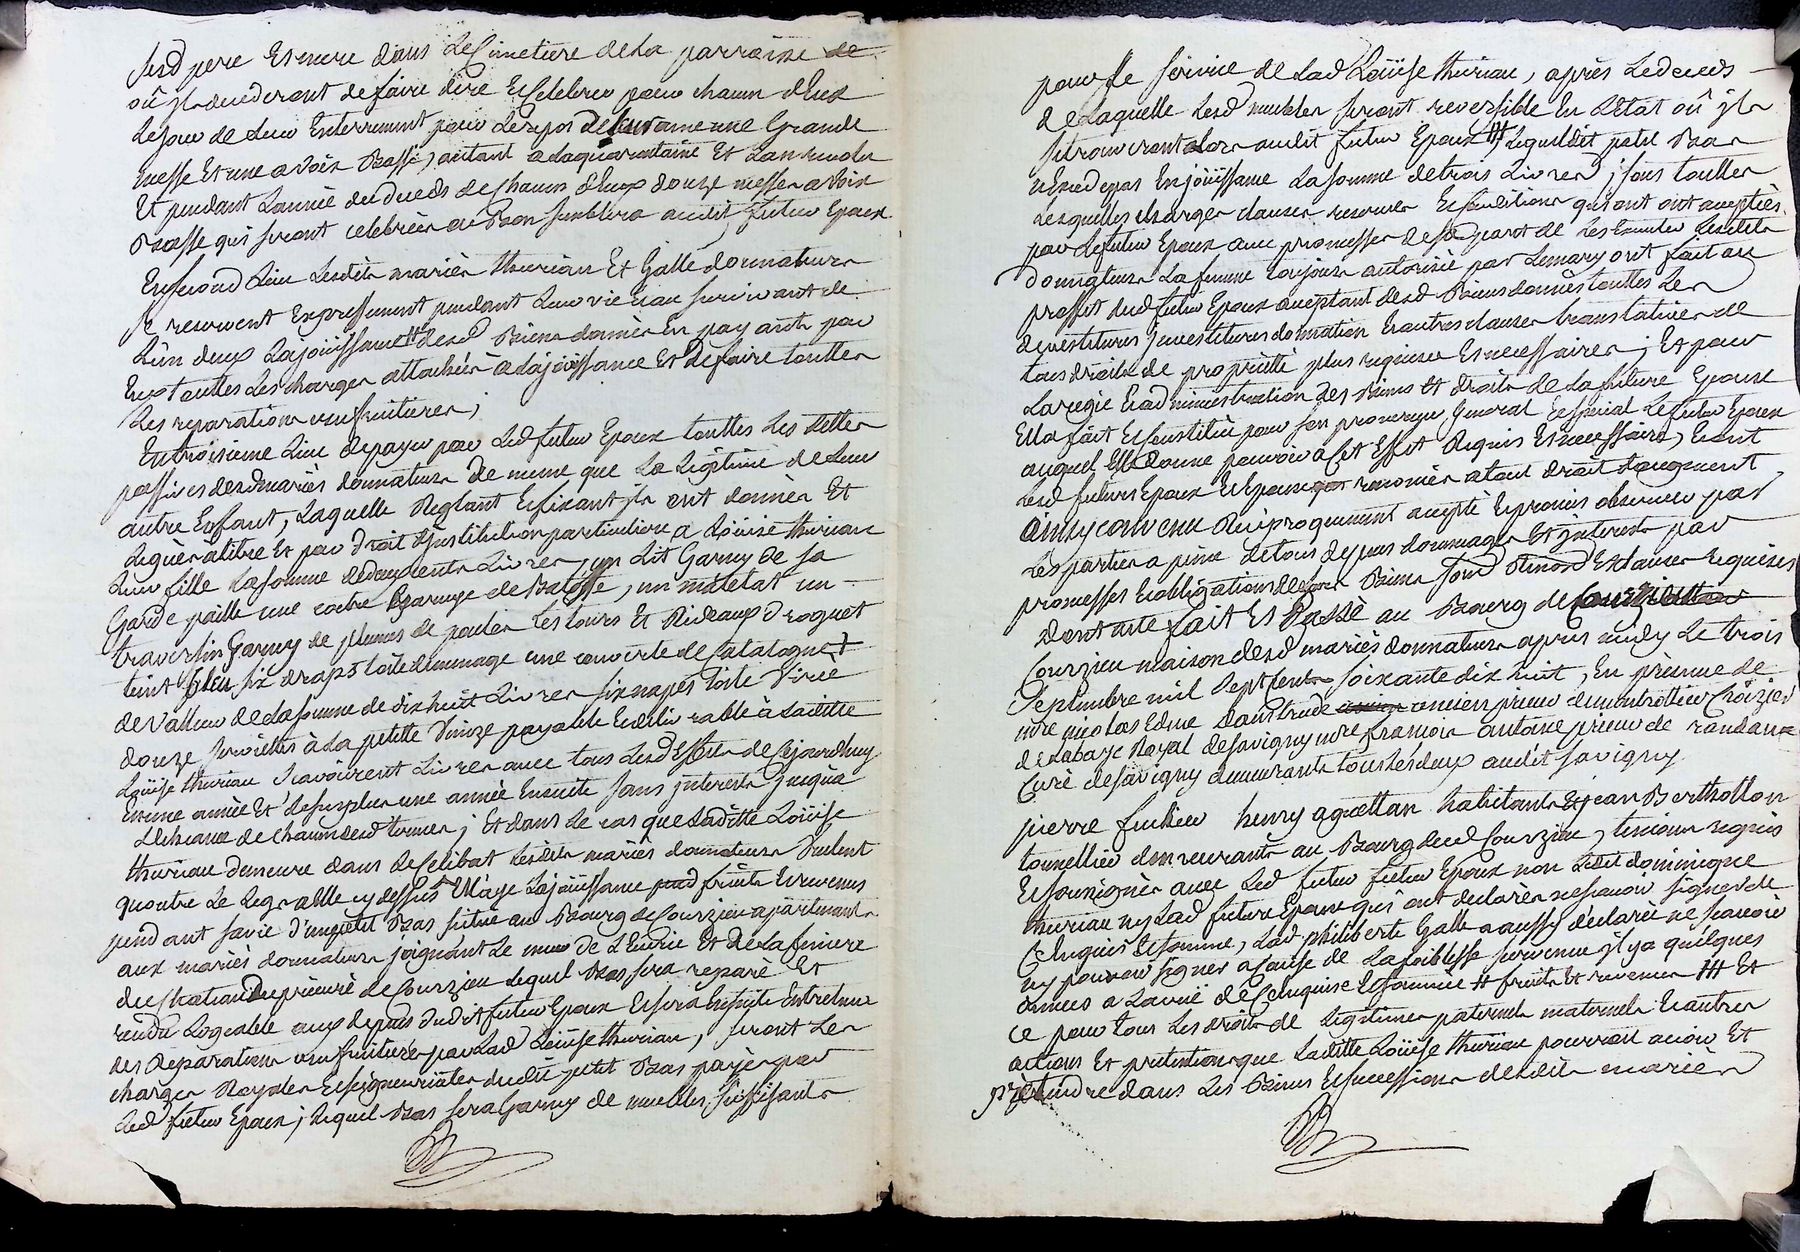 sesd pere Et mere dans Le Cimetiere de La parroisse de
où jls decederont de faire dire Et Celebrer pour chacun d'Eux
Le jour de Leur Enterrement pour Le repos de Leur ame une Grande
messe Et une a voix Basse, autant a La quarantaine Et L'an revolu
Et pendant L'année du deceds de Chacun d'Eux douze messes a voix
Basse qui seront celebrées ou Bon semblera audit futur Epoux
En second Lieu Lesdits mariés thuriau Et Galle donnateurs
se reservent Expressement pendant Leur vie Et au survivant de
L'un d'eux La joüissance desd Biens donnés En payants par
Eux touttes Les charges attachées à La joüissance Et de faire touttes
Les reparations usufruitieres;
En troisieme Lieu de payer par Led futur Epoux touttes Les dettes
passives desd mariés donnateurs de meme que La Legitime de Leur
autre Enfant, Laquelle Reglant Et fixant jls ont donnés Et
Legués a titre Et par droit d'jnstitution particuliere a Loüise thuriau
Leur fille La somme de deux cents Livres, un Lit Garny de sa
Garde paille une coetre Egarnye de Balosse, un matelat un
traversin Garny de plumes de poules Les tours Et Rideaux droguet
teint Bleu six draps toile de menage une couverte de Catalogne
de valleur de La somme de dix huit Livres six napes toile Virée
douze serviettes à La petite Venize payable Et delivrable à Laditte
Loüise thuriau sçavoir cent Livres avec tous Lesd Effets de cejourd'huy
En une année Et Le surplus une année Ensuite sans jnterests jusqu'a
L'Echeance de Chacun desd termes; Et dans Le cas que Laditte Loüise
thuriau demeure dans Le Celibat Lesdits mariés donnateurs Veulent
qu'outre Le Legs a Elle cy dessus Ell'aye La joüissance
pendant sa vie d'un petit Bas situé au Bourg de Courzieu apartenant
aux mariés donnateurs joignant Le mur de L'Ecurie Et de La feniere
du Chateau du prieuré de Courzieu Lequel Bas sera reparé Et
rendu Logeable aux depens dudit futur Epoux Et sera Ensuite Entretenu
des Reparations usufruitieres par Lad Loüise thuriau, seront Les
charges Royales Et seigneuriales dudit petit Bas payées par
Led futur Epoux; Lequel Bas sera Garny de meubles suffisants
pour Le service de Lad Loüise thuriau, après Le deceds
de Laquelle Lesd meubles seront reversible En L'Etat où jls
se trouveront alors audit futur Epoux Lequel dit petit Bas
n'Excede pas En joüissance La somme de trois Livres; sous touttes
Lesquelles charges clauses reserves Et conditions qui ont ont acceptées
par Le futur Epoux avec promesses de sa part de Les Executer Lesdits
donnateurs La femme toujours autorisée par Le mary ont fait au
proffit dud futur Epoux acceptant desd Biens donnés touttes Les
devestitures jnvestitures donnation Et autres clauses translatives de
tous droits de proprieté plus requises Et necessaires; Et pour
La regie Et administration des Biens Et droits de La future Epouse
Ella fait Et Constitué pour son procureur General Et special Le futur Epoux
auquel Elle donne pouvoir a Cet Effet Requis Et necessaire, Et ont
Lesd futurs Epoux Et Epouse renoncés a tout droit d'augment
Ainsy convenu Reciproquement accepté Et promis observer par
Les parties a peine de tous depens dommages Et jnterests par
promesses Et obligations de Leurs Biens soud Renond Et clauses requises
dont acte fait Et Passé au Bourg de
Courzieu maison desd mariés donnateurs apres midy Le trois
Septembre mil Sept Cents soixante dix huit, En presence de
mre nicolas Edme Dancien prieur
de Labaye Royal de Savigny mre francois antoine prieur de randans
Curé de Savigny demeurants tous Les deux audit Savigny
pierre henry habitants Et jean Berthollon
tonnellier demeurants au Bourg dud Courzieu, temoins requis
Et soussignés avec Led futur Epoux non Ledit dominique
thuriau ny Lad future Epouse qui ont declarés ne sçavoir signer de
Ce Enquis Et sommé, Lad philiberte Galle a aussy declaré ne sçavoir
ny pouvoir signer a Cause de La foiblesse survenue jl y a quelques
années a La vuë de Ce Enquise Et sommée # fruits Et revenus ### Et
ce pour tous Les droits de Legitimes paternels maternels Et autres
actions Et pretentions que Laditte Loüise thuriau pourroit avoir Et
prétendre dans Les Biens Et successions desdits mariés